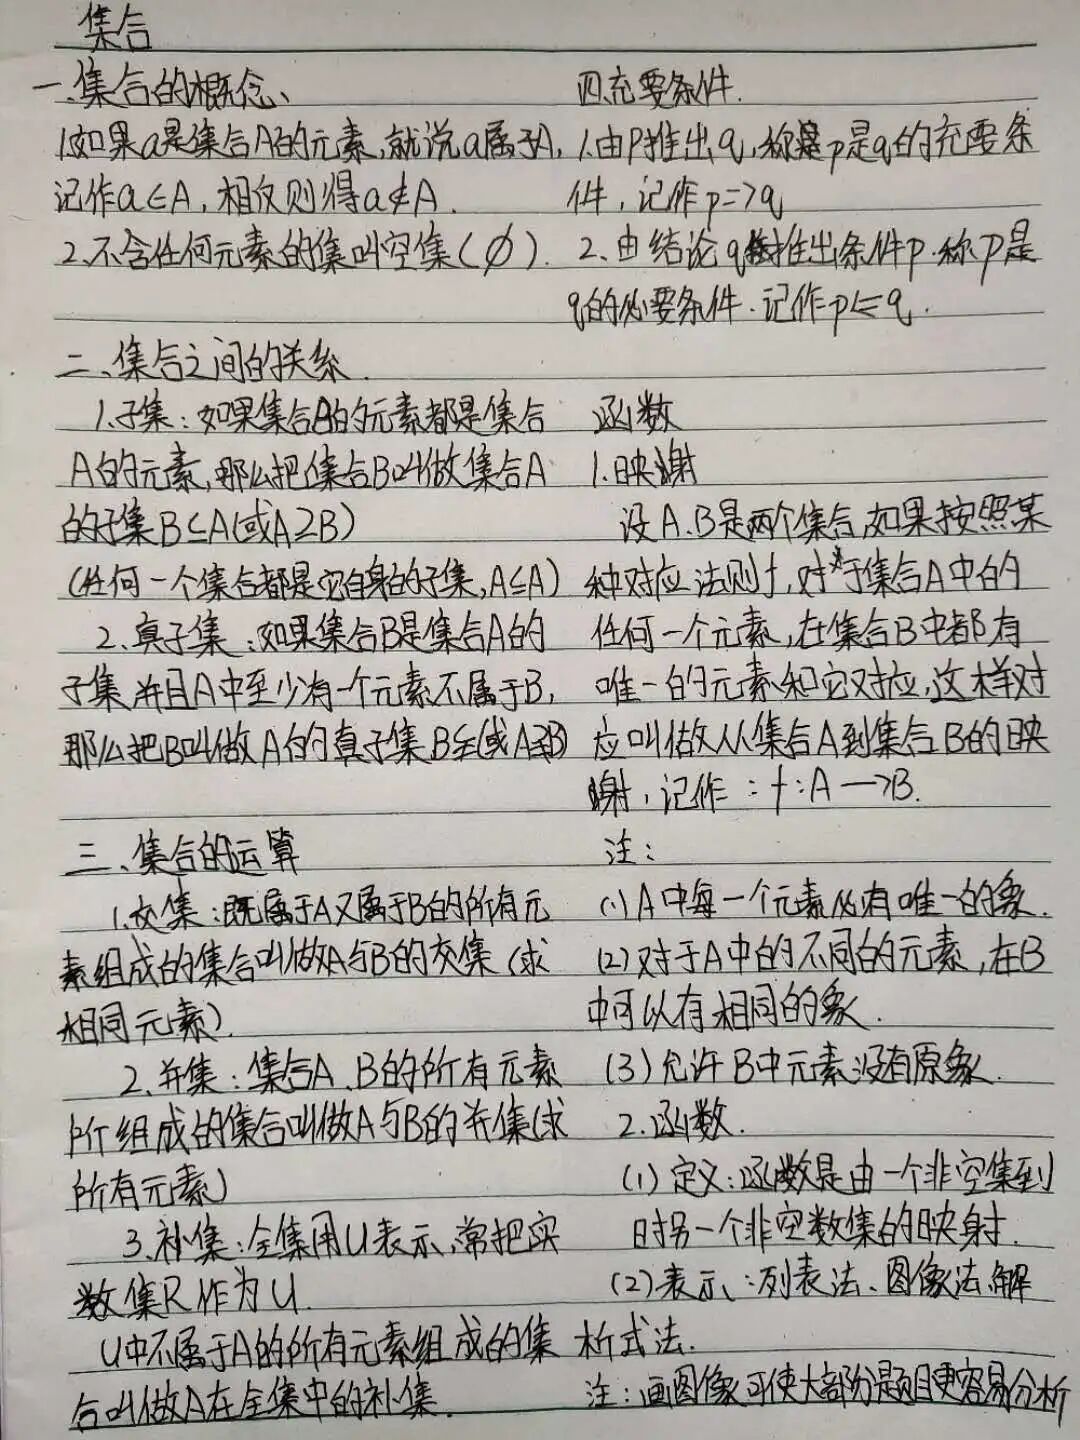 集合
一.集合的概念、
1.如果a是集合A的元素,就说a属于A,
记作a∈A,相反则得a∉A.
2.不含任何元素的集叫空集(∅).
二、集合之间的关系.
1.子集:如果集合B的元素都是集合
A的元素,那么把集合B叫做集合A
的子集B⊆A(或A⊇B)
(任何一个集合都是它自身的子集,A⊆A)
2.真子集:如果集合B是集合A的
子集并且A中至少有一个元素不属于B,
那么把B叫做A的真子集B⊊(或A⊋B)
三、集合的运算
1.交集:既属于A又属于B的所有元
素组成的集合叫做A与B的交集(求
相同元素).
2.并集:集合A、B的所有元素
所组成的集合叫做A与B的并集(求
所有元素)
3.补集:全集用U表示,常把实
数集R作为U.
U中不属于A的所有元素组成的集
合叫做A在全集中的补集.
四.充要条件.
1.由P推出q,称p是q的充要条
件,记作p=>q
2.由结论q推出条件p.称P是
q的必要条件.记作p⇐q.
函数
1.映谢
设A.B是两个集合,如果按照某
种对应法则f,对于集合A中的
任何一个元素,在集合B中都有
唯一的元素和它对应,这样对
应叫做从集合A到集合B的映
谢,记作:f:A—>B.
注:
(1)A中每一个元素必有唯一的象.
(2)对于A中的不同的元素,在B
中可以有相同的象.
(3)允许B中元素没有原象.
2.函数.
(1)定义:函数是由一个非空集到
时另一个非空数集的映射.
(2)表示:列表法、图像法、解
析式法.
注:画图像可使大部份题目更容易分析